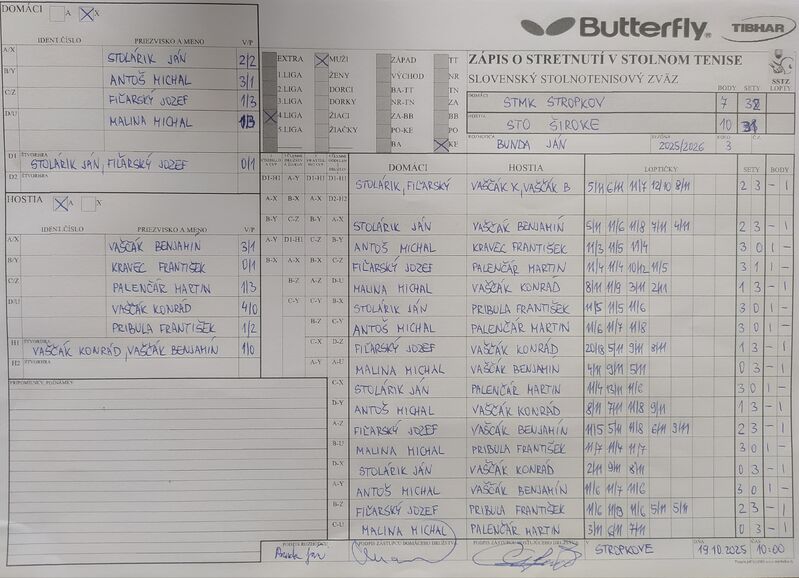 DOMÁCI A X
IDENT.ČÍSLO PRIEZVISKO A MENO V/P
A/X STOLÁRIK JÁN 2/2
B/Y ANTOŠ MICHAL 3/1
C/Z FIĽARSKÝ JOZEF 1/3
D/U MALINA MICHAL 1/3
D1 ŠTVORHRA STOLÁRIK JÁN, FIĽARSKÝ JOZEF 0/1
D2 ŠTVORHRA
HOSTIA A X
IDENT.ČÍSLO PRIEZVISKO A MENO V/P
A/X VAŠČÁK BENJAMÍN 3/1
B/Y KRAVEC FRANTIŠEK 0/1
C/Z PALENČÁR MARTIN 1/3
D/U VAŠČÁK KONRÁD 4/0
PRIBULA FRANTIŠEK 1/2
H1 ŠTVORHRA VAŠČÁK KONRÁD, VAŠČÁK BENJAMÍN 1/0
H2 ŠTVORHRA
PRIPOMIENKY, POZNÁMKY
Butterfly TIBHAR
EXTRA MUŽI ZÁPAD TT
1.LIGA ŽENY VÝCHOD NR
2.LIGA DORCI BA-TT TN
3.LIGA DORKY NR-TN ZA
4.LIGA ŽIACI ZA-BB BB
5.LIGA ŽIAČKY PO-KE PO
BA KE
ZÁPIS O STRETNUTÍ V STOLNOM TENISE
SLOVENSKÝ STOLNOTENISOVÝ ZVÄZ
SSTZ
BODY SETY LOPTY
DOMÁCI STMK STROPKOV 7
HOSTIA STO ŠIROKÉ 10
ROZHODCA BUNDA JÁN SEZÓNA 2025/2026 KOLO 3 Č.Z.
DOMÁCI HOSTIA LOPTIČKY SETY BODY
D1-H1 A-Y D1-H1 D1-H1 STOLÁRIK, FIĽARSKÝ VAŠČÁK K, VAŠČÁK B 5/11 6/11 11/7 12/10 8/11 2 3 - 1
A-X B-X A-X D2-H2
B-Y C-Z B-Y A-X STOLÁRIK JÁN VAŠČÁK BENJAMÍN 5/11 11/6 11/8 7/11 4/11 2 3 - 1
A-Y D1-H1 C-Z B-Y ANTOŠ MICHAL KRAVEC FRANTIŠEK 11/3 11/5 11/4 3 0 1 -
B-X A-X D-U C-Z FIĽARSKÝ JOZEF PALENČÁR MARTIN 11/4 11/4 10/12 11/5 3 1 1 -
B-Z A-Z D-U MALINA MICHAL VAŠČÁK KONRÁD 8/11 11/9 3/11 2/11 1 3 - 1
C-Y B-X A-Y STOLÁRIK JÁN PRIBULA FRANTIŠEK 11/5 11/5 11/6 3 0 1 -
B-Z C-Y B-Z ANTOŠ MICHAL PALENČÁR MARTIN 11/6 11/7 11/8 3 0 1 -
C-X D-Z FIĽARSKÝ JOZEF VAŠČÁK KONRÁD 20/18 5/11 9/11 1 3 - 1
A-Y A-U MALINA MICHAL VAŠČÁK BENJAMÍN 4/11 9/11 5/11 0 3 - 1
C-X STOLÁRIK JÁN PALENČÁR MARTIN 11/4 13/11 11/6 3 0 1 -
D-Y ANTOŠ MICHAL VAŠČÁK KONRÁD 8/11 7/11 11/8 9/11 1 3 - 1
A-Z FIĽARSKÝ JOZEF VAŠČÁK BENJAMÍN 11/5 5/11 11/8 6/11 3/11 2 3 - 1
B-U MALINA MICHAL PRIBULA FRANTIŠEK 11/7 11/4 11/7 3 0 1 -
D-X STOLÁRIK JÁN VAŠČÁK KONRÁD 2/11 9/11 8/11 0 3 - 1
A-Y ANTOŠ MICHAL VAŠČÁK BENJAMÍN 11/6 11/7 11/6 3 0 1 -
B-Z FIĽARSKÝ JOZEF PRIBULA FRANTIŠEK 11/6 11/6 5/11 5/11 2 3 - 1
C-U MALINA MICHAL PALENČÁR MARTIN 3/11 6/11 7/11 0 3 - 1
PODPIS ROZHODCU PODPIS ZÁSTUPCU DOMÁCEHO DRUŽSTVA PODPIS ZÁSTUPCU HOSŤUJÚCEHO DRUŽSTVA V STROPKOVE DŇA 19.10.2025 ČAS 10:00